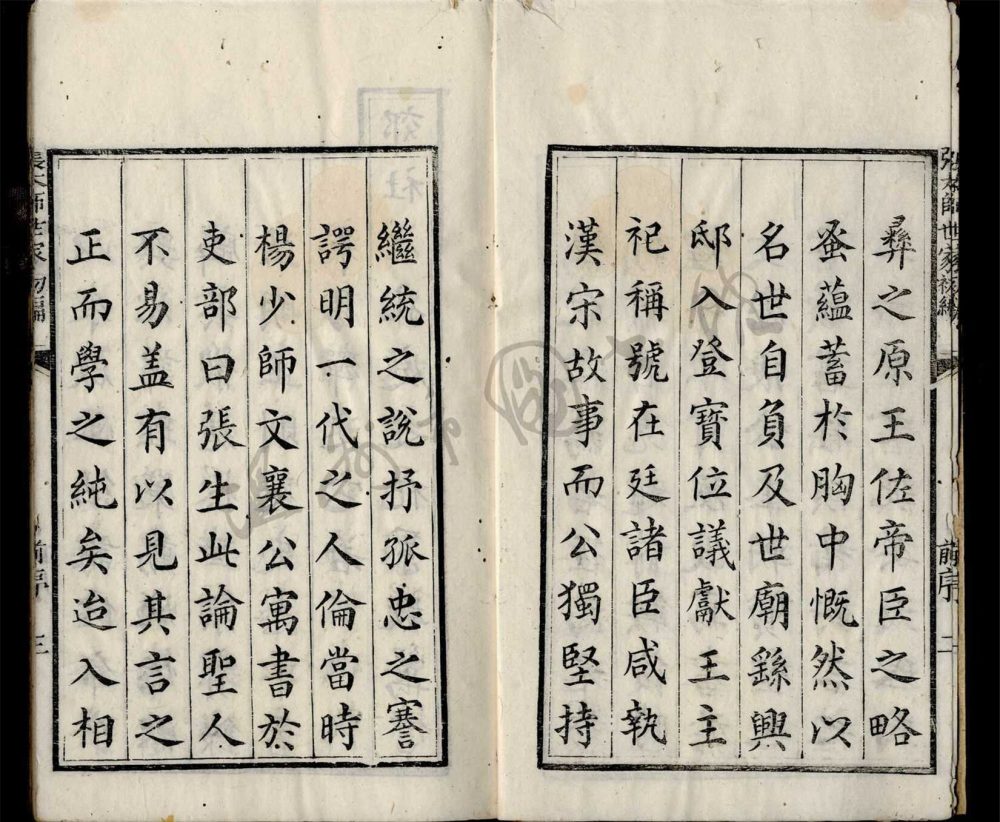 彞之原王佐帝臣之略
蚤蘊蓄於胸中慨然以
名世自負及世廟繇興
邸入登寶位議獻王主
祀稱號在廷諸臣咸執
漢宋故事而公獨堅持
前序
二
繼統之說抒孤忠之謇
諤明一代之人倫當時
楊少師文襄公寓書於
吏部曰張生此論聖人
不易盖有以見其言之
正而學之純矣迨入相
前序
三